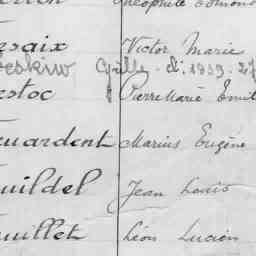 Théophile Edmond
esaix Victor Marie
eskiw Cyrille - d. 1939.27
estoc Pierre Marie Emil
euardent Marius Eugène
uildel Jean Louis
uillet Léon Lucien